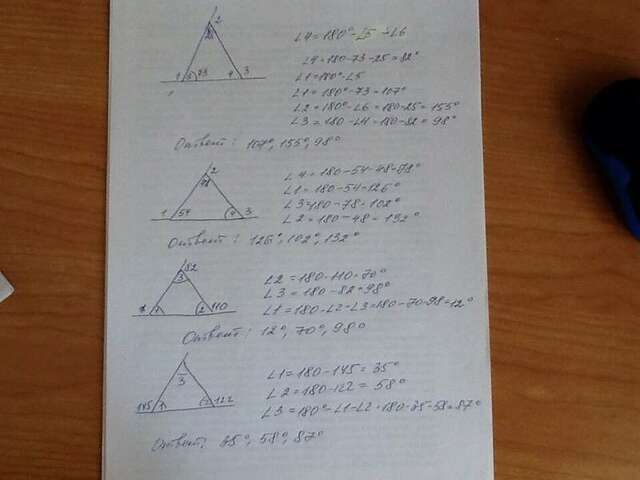 2
25
∠4 = 180° - ∠5 - ∠6
∠4 = 180 - 73 - 25 = 82°
1 5 73 4 3
∠1 = 180° - ∠5
∠1 = 180° - 73 = 107°
∠2 = 180° - ∠6 = 180 - 25 = 155°
∠3 = 180 - ∠4 = 180 - 82 = 98°
Ответ: 107°, 155°, 98°
2
48
∠4 = 180 - 54 - 48 = 78°
∠1 = 180 - 54 = 126°
∠3 = 180 - 78 = 102°
1 54 4 3
∠2 = 180 - 48 = 132°
Ответ: 126°, 102°, 132°
82
3
∠2 = 180 - 110 = 70°
∠3 = 180 - 82 = 98°
1 2 110
∠1 = 180 - ∠2 - ∠3 = 180 - 70 - 98 = 12°
Ответ: 12°, 70°, 98°
3
∠1 = 180 - 145 = 35°
∠2 = 180 - 122 = 58°
145 1 2 122
∠3 = 180° - ∠1 - ∠2 = 180 - 35 - 58 = 87°
Ответ: 35°, 58°, 87°